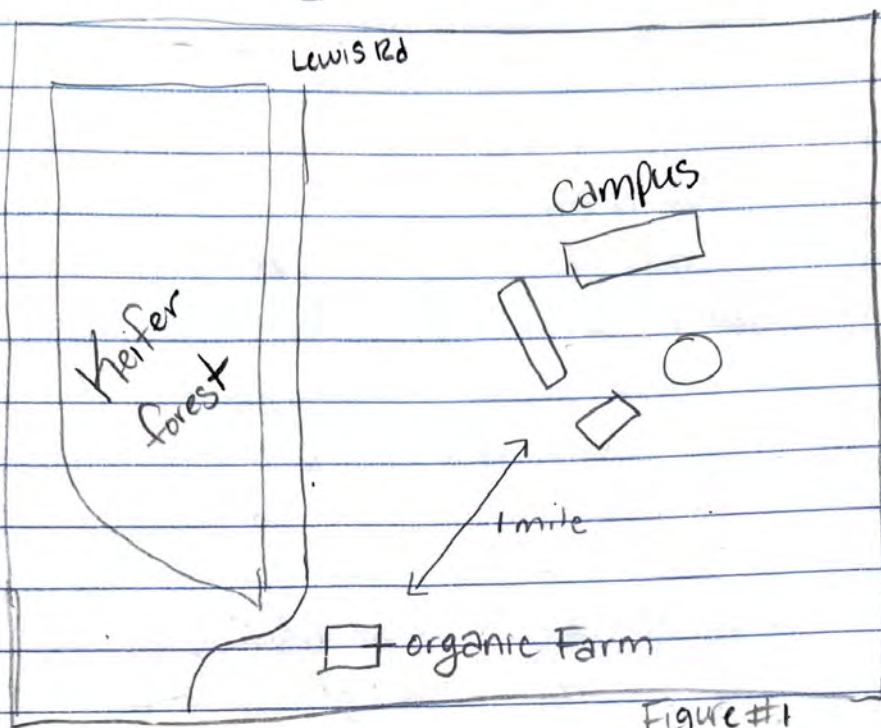 Lewis Rd
Campus
Keifer
forest
1 mile
organic Farm
Figure #1